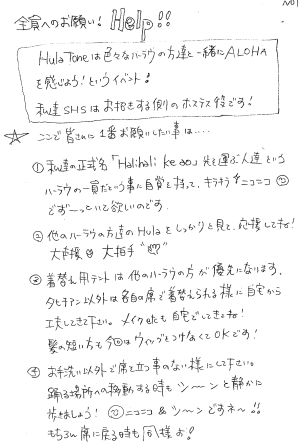 NO1
全員へのお願い! Help!!
Hula Toneは色々なハーラウの方達と一緒にALOHA
を感じよう!というイベント!
私達SHSはお招きする側のホステス役です!
☆ ここで皆さまに1番お願いしたい事は....
① 私達の正式名「Halihali ke ao」光を運ぶ人達という
ハーラウの一員だという事に自覚を持って、キラキラ ニコニコ
でず〜っといて欲しいのです.
② 他のハーラウの方達のHulaをしっかりと見て、応援してネ!
大声援 大拍手
③ 着替え用テントは他のハーラウの方が優先になります.
タヒチアン以外は各自の席で着替えられる様に自宅から
工夫してきて下さい。メイクetcも自宅でしてきてね!
髪の短い方も今回はウィッグをつけなくてOKです!
④ お手洗い以外で席を立つ事のない様にして下さい。
踊る場所への移動する時もツ〜ンと静かに
歩きましょう! ニコニコ & ツ〜ンですネ〜!!
もちろん席に戻る時も同様よ!